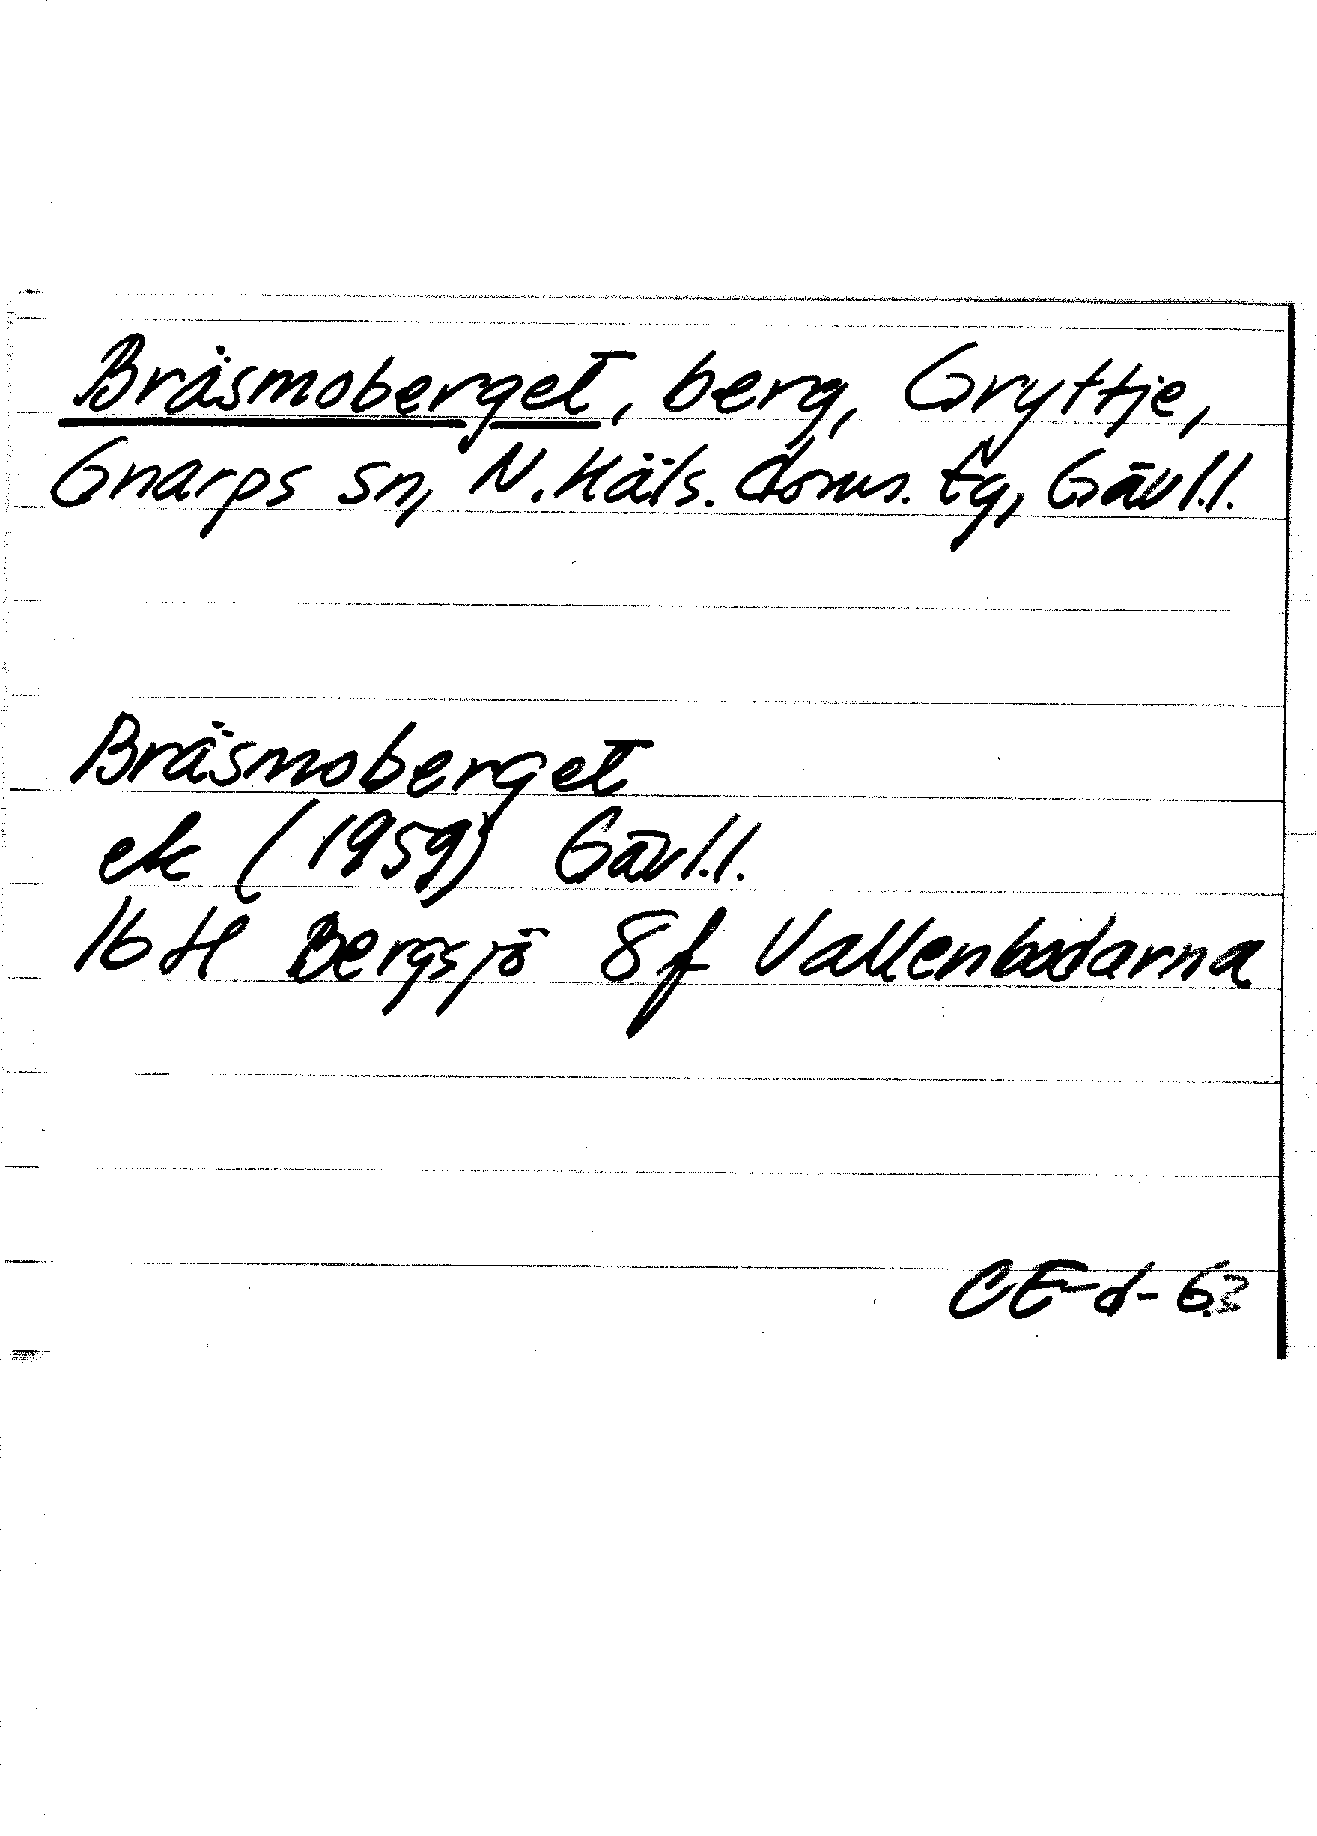 Bräsmoberget, berg, Gryttje,
Gnarps sn, N. Häls. doms. tg, Gävl.l.
Bräsmoberget
ek (1959) Gävl.l.
16 H Bergsjö 8f Vallenbodarna
CE-d-63